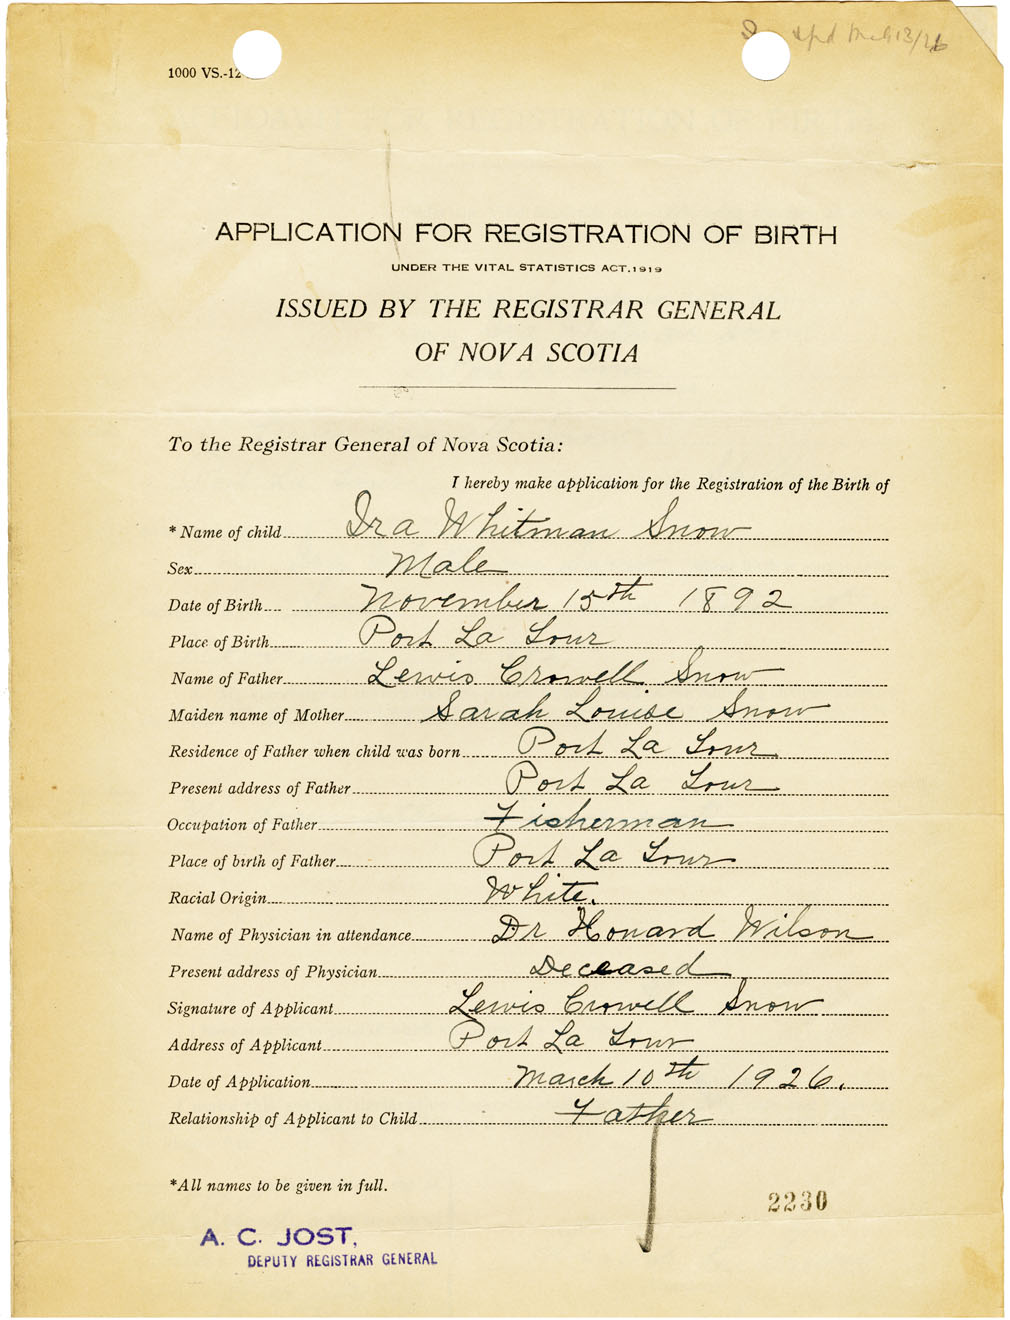 1000 VS.-12
Mch 13/26
APPLICATION FOR REGISTRATION OF BIRTH
UNDER THE VITAL STATISTICS ACT.1919
ISSUED BY THE REGISTRAR GENERAL
OF NOVA SCOTIA
To the Registrar General of Nova Scotia:
I hereby make application for the Registration of the Birth of
* Name of child Ira Whitman Snow
Sex Male
Date of Birth November 15th 1892
Place of Birth Port La Tour
Name of Father Lewis Crowell Snow
Maiden name of Mother Sarah Louise Snow
Residence of Father when child was born Port La Tour
Present address of Father Port La Tour
Occupation of Father Fisherman
Place of birth of Father Port La Tour
Racial Origin White.
Name of Physician in attendance Dr Howard Wilson
Present address of Physician Deceased
Signature of Applicant Lewis Crowell Snow
Address of Applicant Port La Tour
Date of Application March 10th 1926.
Relationship of Applicant to Child Father
*All names to be given in full.
2230
A. C. JOST,
DEPUTY REGISTRAR GENERAL